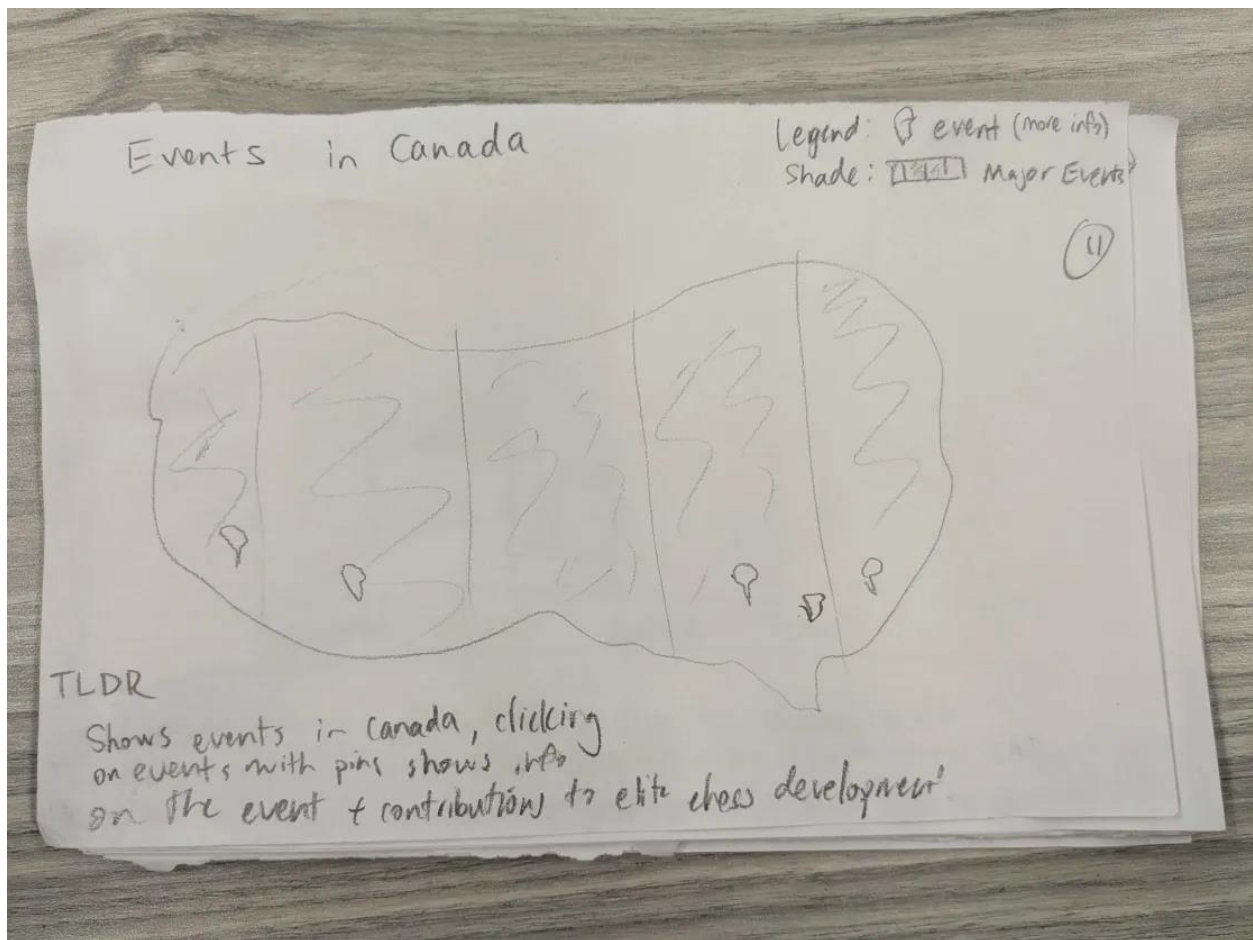 Events in Canada
Legend: event (more info)
Shade: Major Events
11
TLDR
Shows events in Canada, clicking
on events with pins shows info
on the event + contributions to elite chess development